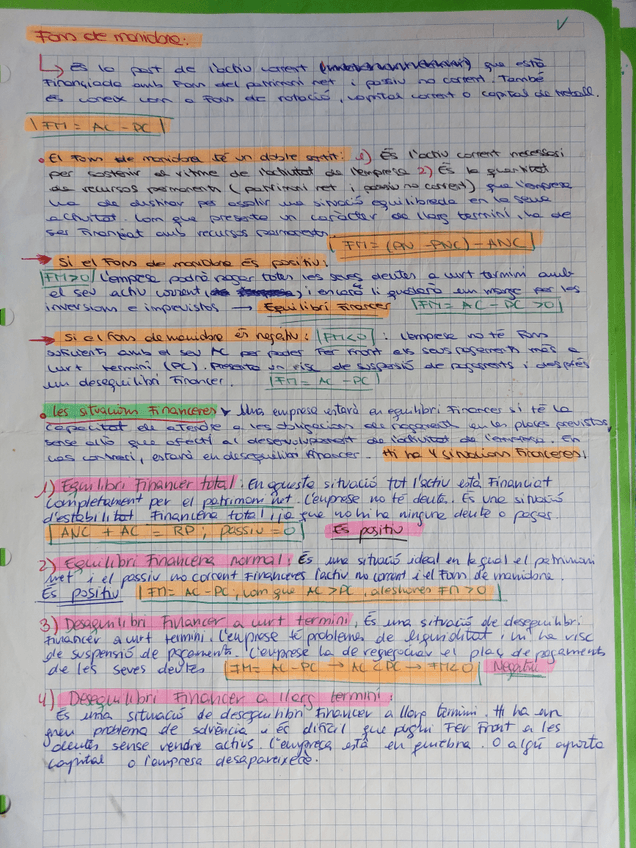 Fons de maniobra:
↳ És la part de l'actiu corrent que està
Finançada amb Fons del patrimoni net i passiu no corrent. També
és coneix com a Fons de rotació, capital corrent o capital de treball.
FM = AC - PC
• El Fons de maniobra té un doble sentit: 1) És l'actiu corrent necessari
per sostenir el ritme de l'activitat de l'empresa 2) És la quantitat
de recursos permanents (patrimoni net i passiu no corrent) que l'empresa
ha de destinar per assolir una situació equilibrada en la seva
activitat. Com que presenta un caràcter de llarg termini, ha de
ser Finançat amb recursos permanents.
FM = (PN - PNC) - ANC
→ Si el Fons de maniobra és positiu:
FM>0 L'empresa podrà pagar totes les seves deutes a curt termini amb
el seu actiu corrent, i encarà li quedarà un marge per les
inversions e imprevistos → Equilibri Financer FM = AC - PC > 0
→ Si el Fons de maniobra és negatiu: FM<0 : L'empresa no té Fons
suficients amb el seu AC per poder Fer Front als seus pagaments més a
curt termini (PC). Presenta un risc de suspensió de pagaments i després
un desequilibri Financer. FM = AC - PC
• Les situacions Financeres Una empresa estarà en equilibri Financer si té la
capacitat de atendre a les obligacions de pagament en les plaços previstos,
sense allò que afecti al desenvolupament de l'activitat de l'empresa. En
cas contrari, estarà en desequilibri Financer. Hi ha 4 situacions Financeres:
1) Equilibri Financer total: En aquesta situació tot l'actiu està Financiat
completament per el patrimoni net. L'empresa no té deute. És una situació
d'estabilitat Financera total, ja que no hi ha ninguna deute a pagar.
ANC + AC = RP; passiu = 0 És positiu
2) Equilibri Financera normal: És una situació ideal en la qual el patrimoni
net i el passiu no corrent Financeres l'actiu no corrent i el Fons de maniobra.
És positiu FM = AC - PC; com que AC > PC, aleshores FM > 0
3) Desequilibri Financer a curt termini, És una situació de desequilibri
Financer a curt termini. L'empresa té problema de liquiditat i hi ha risc
de suspensió de pagaments. L'empresa ha de renegociar el plaç de pagaments
de les seves deutes FM = AC - PC → AC < PC → FM < 0 Negatiu
4) Desequilibri Financer a llarg termini:
És una situació de desequilibri Financer a llarg termini. Hi ha un
greu problema de solvència i és difícil que pugui Fer Front a les
deutes sense vendre actius. L'empresa està en Q̶ O algú aporta
capital o l'empresa desapareixerè.